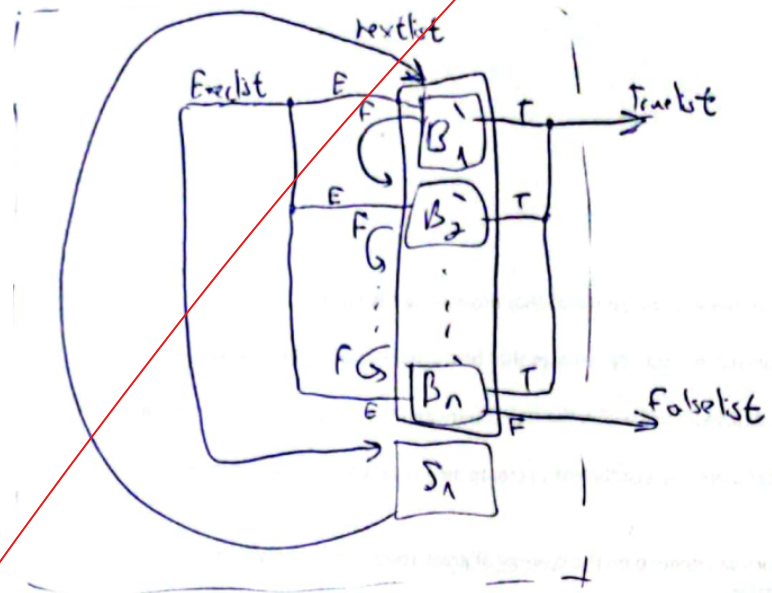 nextlist
Execlist E F T Truelist
B1
E T
F B2
F
Bn T
E F falselist
S1